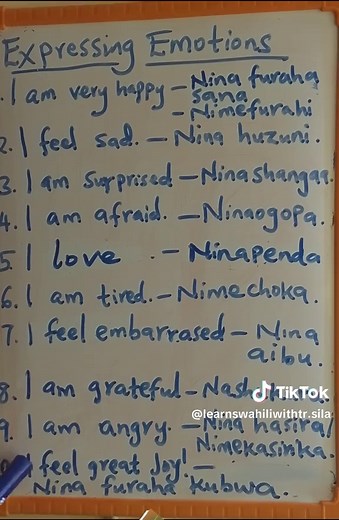 Expressing Emotions
1. I am very happy - Nina furaha
sana
- Nimefurahi
2. I feel sad. - Nina huzuni.
3. I am surprised - Ninashangaa.
4. I am afraid. - Ninaogopa.
5. I love - Ninapenda
6. I am tired. - Nimechoka.
7. I feel embarrased - Nina
aibu.
8. I am grateful -
TikTok
@learnswahiliwithtr.sila
9. I am angry. - Nina hasira/
Nimekasirika.
I feel great Joy! -
Nina furaha kubwa.